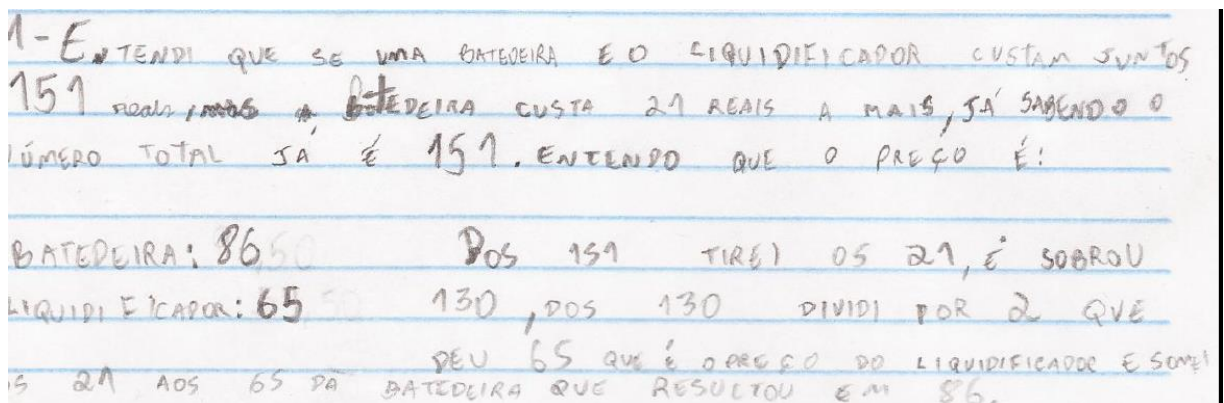 1- ENTENDI QUE SE UMA BATEDEIRA E O LIQUIDIFICADOR CUSTAM JUNTOS
151 reais, mas a BATEDEIRA CUSTA 21 REAIS A MAIS, JÁ SABENDO O
ÚMERO TOTAL JÁ É 151. ENTENDO QUE O PREÇO É:
BATEDEIRA: 86,50 DOS 151 TIREI OS 21, E SOBROU
LIQUIDIFICADOR: 65,50 130, DOS 130 DIVIDI POR 2 QUE
DEU 65 QUE É O PREÇO DO LIQUIDIFICADOR E SOMEI
S 21 AOS 65 DA BATEDEIRA QUE RESULTOU EM 86.